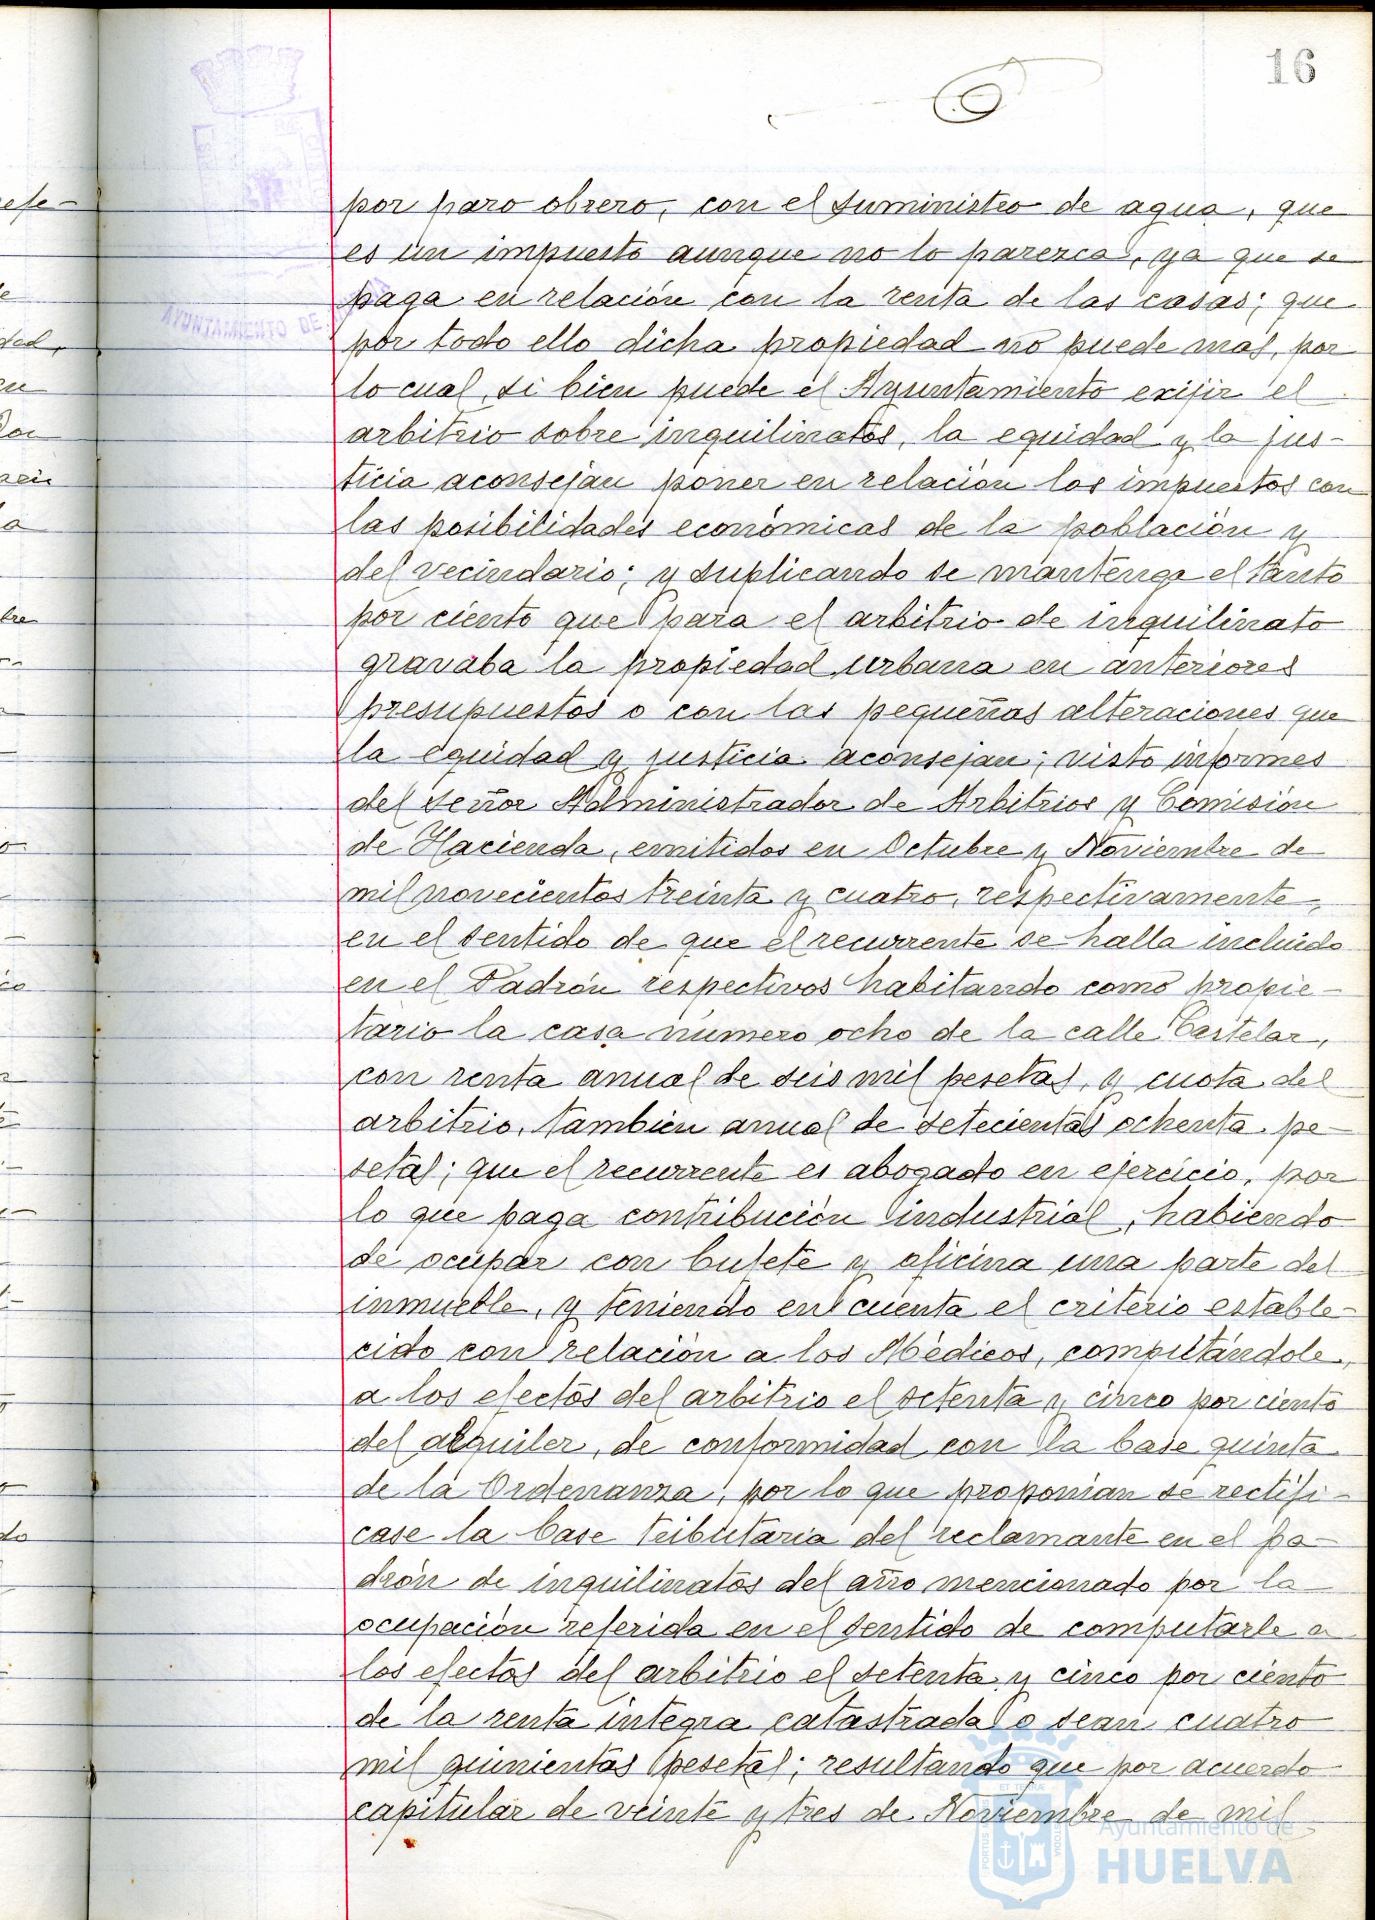 16
por paro obrero, con el suministro de agua, que
es un impuesto aunque no lo parezca, ya que se
paga en relación con la renta de las casas; que
por todo ello dicha propiedad no puede mas, por
lo cual, si bien puede el Ayuntamiento exijir el
arbitrio sobre inquilinatos, la equidad y la jus-
ticia aconsejan poner en relación los impuestos con
las posibilidades económicas de la población y
del vecindario; y suplicando se mantenga el tanto
por ciento que para el arbitrio de inquilinato
gravaba la propiedad urbana en anteriores
presupuestos o con las pequeñas alteraciones que
la equidad y justicia aconsejan; visto informes
del señor Administrador de Arbitrios y Comisión
de Hacienda, emitidos en Octubre y Noviembre de
mil novecientos treinta y cuatro, respectivamente,
en el sentido de que el recurrente se halla incluido
en el Padrón respectivos habitando como propie-
tario la casa número ocho de la calle Castelar,
con renta anual de seis mil pesetas, y cuota del
arbitrio, tambien anual de setecientas ochenta pe-
setas; que el recurrente es abogado en ejercicio, por
lo que paga contribución industrial, habiendo
de ocupar con bufete y oficina una parte del
inmueble, y teniendo en cuenta el criterio estable-
cido con relación a los Médicos, computándole,
a los efectos del arbitrio el setenta y cinco por ciento
del alquiler, de conformidad con la base quinta
de la Ordenanza, por lo que proponian se rectifi-
case la base tributaria del reclamante en el pa-
drón de inquilinatos del año mencionado por la
ocupación referida en el sentido de computarle a
los efectos del arbitrio el setenta y cinco por ciento
de la renta íntegra catastrada o sean cuatro
mil quinientas pesetas; resultando que por acuerdo
capitular de veinte y tres de Noviembre de mil
AYUNTAMIENTO DE
Ayuntamiento de
HUELVA